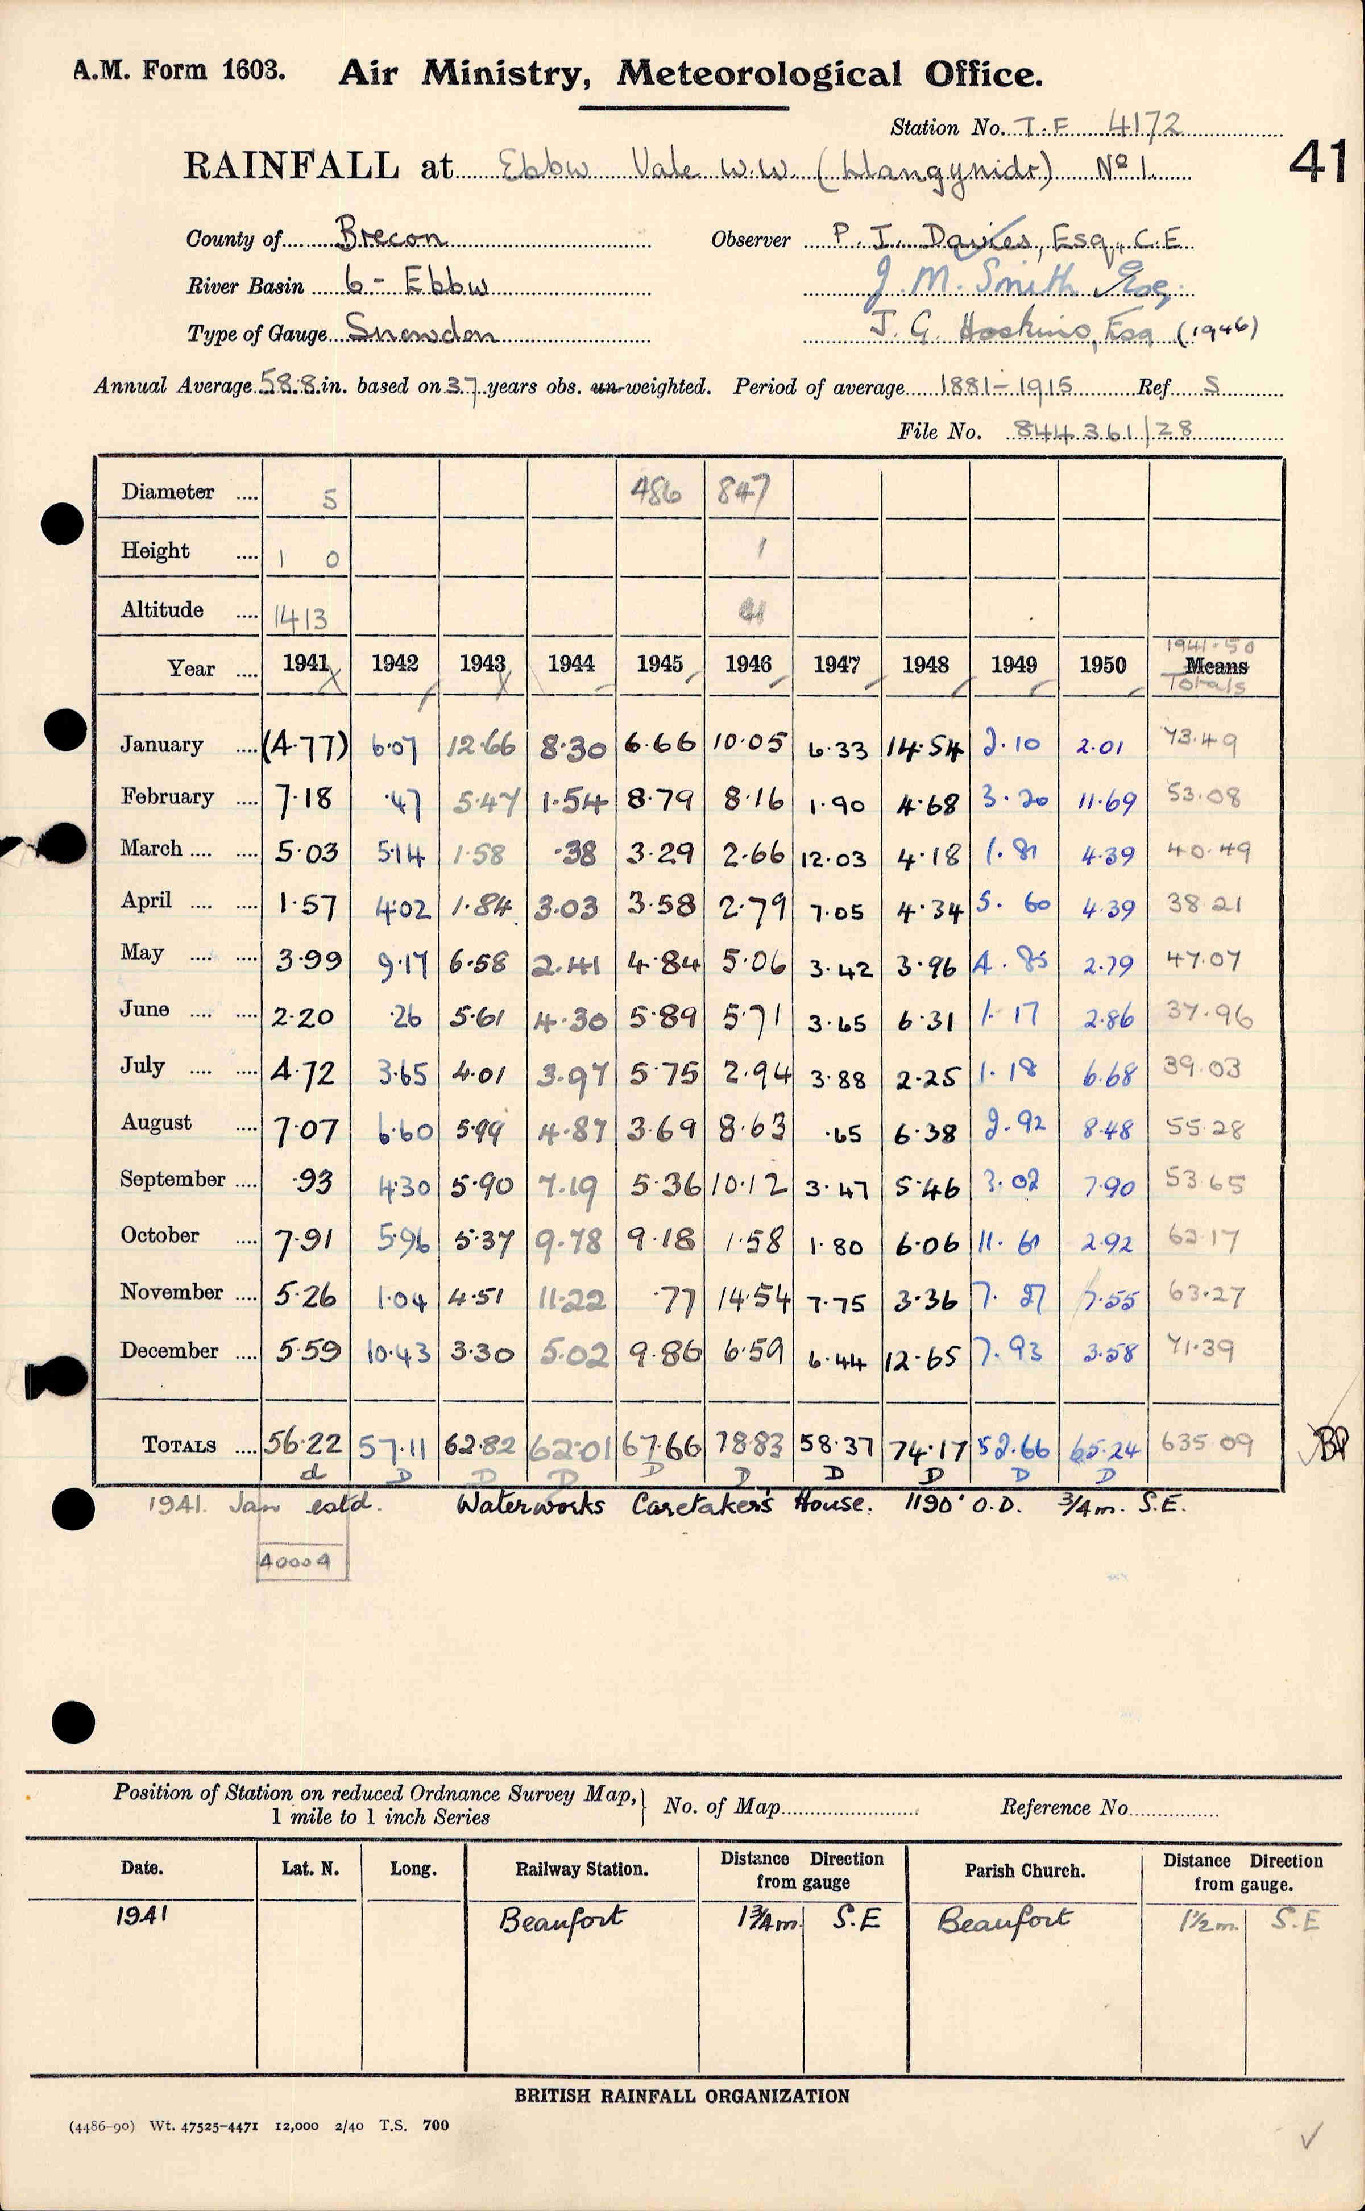 A.M. Form 1603. Air Ministry, Meteorological Office.
Station No. T.F 4172
RAINFALL at Ebbw Vale W.W. (Llangynidr) Nº 1.
41
County of Brecon Observer P. I. Davies, Esq., C.E
River Basin 6 - Ebbw J. M. Smith Esq.
Type of Gauge Snowdon J. G. Hoskins, Esq (1946)
Annual Average 58.8 in. based on 37 years obs. un-weighted. Period of average 1881-1915 Ref S
File No. 844361/28
Diameter .... 5 486 847
Height .... 1 0 1
Altitude .... 1413
Year .... 1941 1942 1943 1944 1945 1946 1947 1948 1949 1950 1941-50 Means Totals
January .... (4.77) 6.07 12.66 8.30 6.66 10.05 6.33 14.54 2.10 2.01 73.49
February .... 7.18 .47 5.47 1.54 8.79 8.16 1.90 4.68 3.20 11.69 53.08
March .... .... 5.03 5.14 1.58 .38 3.29 2.66 12.03 4.18 1.81 4.39 40.49
April .... .... 1.57 4.02 1.84 3.03 3.58 2.79 7.05 4.34 5.60 4.39 38.21
May .... .... 3.99 9.17 6.58 2.41 4.84 5.06 3.42 3.96 4.85 2.79 47.07
June .... .... 2.20 .26 5.61 4.30 5.89 5.71 3.65 6.31 1.17 2.86 37.96
July .... .... 4.72 3.65 4.01 3.97 5.75 2.94 3.88 2.25 1.18 6.68 39.03
August .... 7.07 6.60 5.99 4.87 3.69 8.63 .65 6.38 2.92 8.48 55.28
September .... .93 4.30 5.90 7.19 5.36 10.12 3.47 5.46 3.02 7.90 53.65
October .... 7.91 5.96 5.37 9.78 9.18 1.58 1.80 6.06 11.61 2.92 62.17
November .... 5.26 1.04 4.51 11.22 .77 14.54 7.75 3.36 7.27 7.55 63.27
December .... 5.59 10.43 3.30 5.02 9.86 6.59 6.44 12.65 7.93 3.58 71.39
TOTALS .... 56.22 57.11 62.82 62.01 67.66 78.83 58.37 74.17 52.66 65.24 635.09 BP
d D D D D D D D D D
1941. Jan estd. Waterworks Caretaker's House. 1190' O.D. 3/4 m. S.E.
40009
Position of Station on reduced Ordnance Survey Map, } No. of Map Reference No.
1 mile to 1 inch Series
Date. Lat. N. Long. Railway Station. Distance Direction from gauge Parish Church. Distance Direction from gauge.
1941 Beaufort 1 3/4 m. S.E Beaufort 1 1/2 m. S.E
BRITISH RAINFALL ORGANIZATION
(4486-90) Wt. 47525-4471 12,000 2/40 T.S. 700